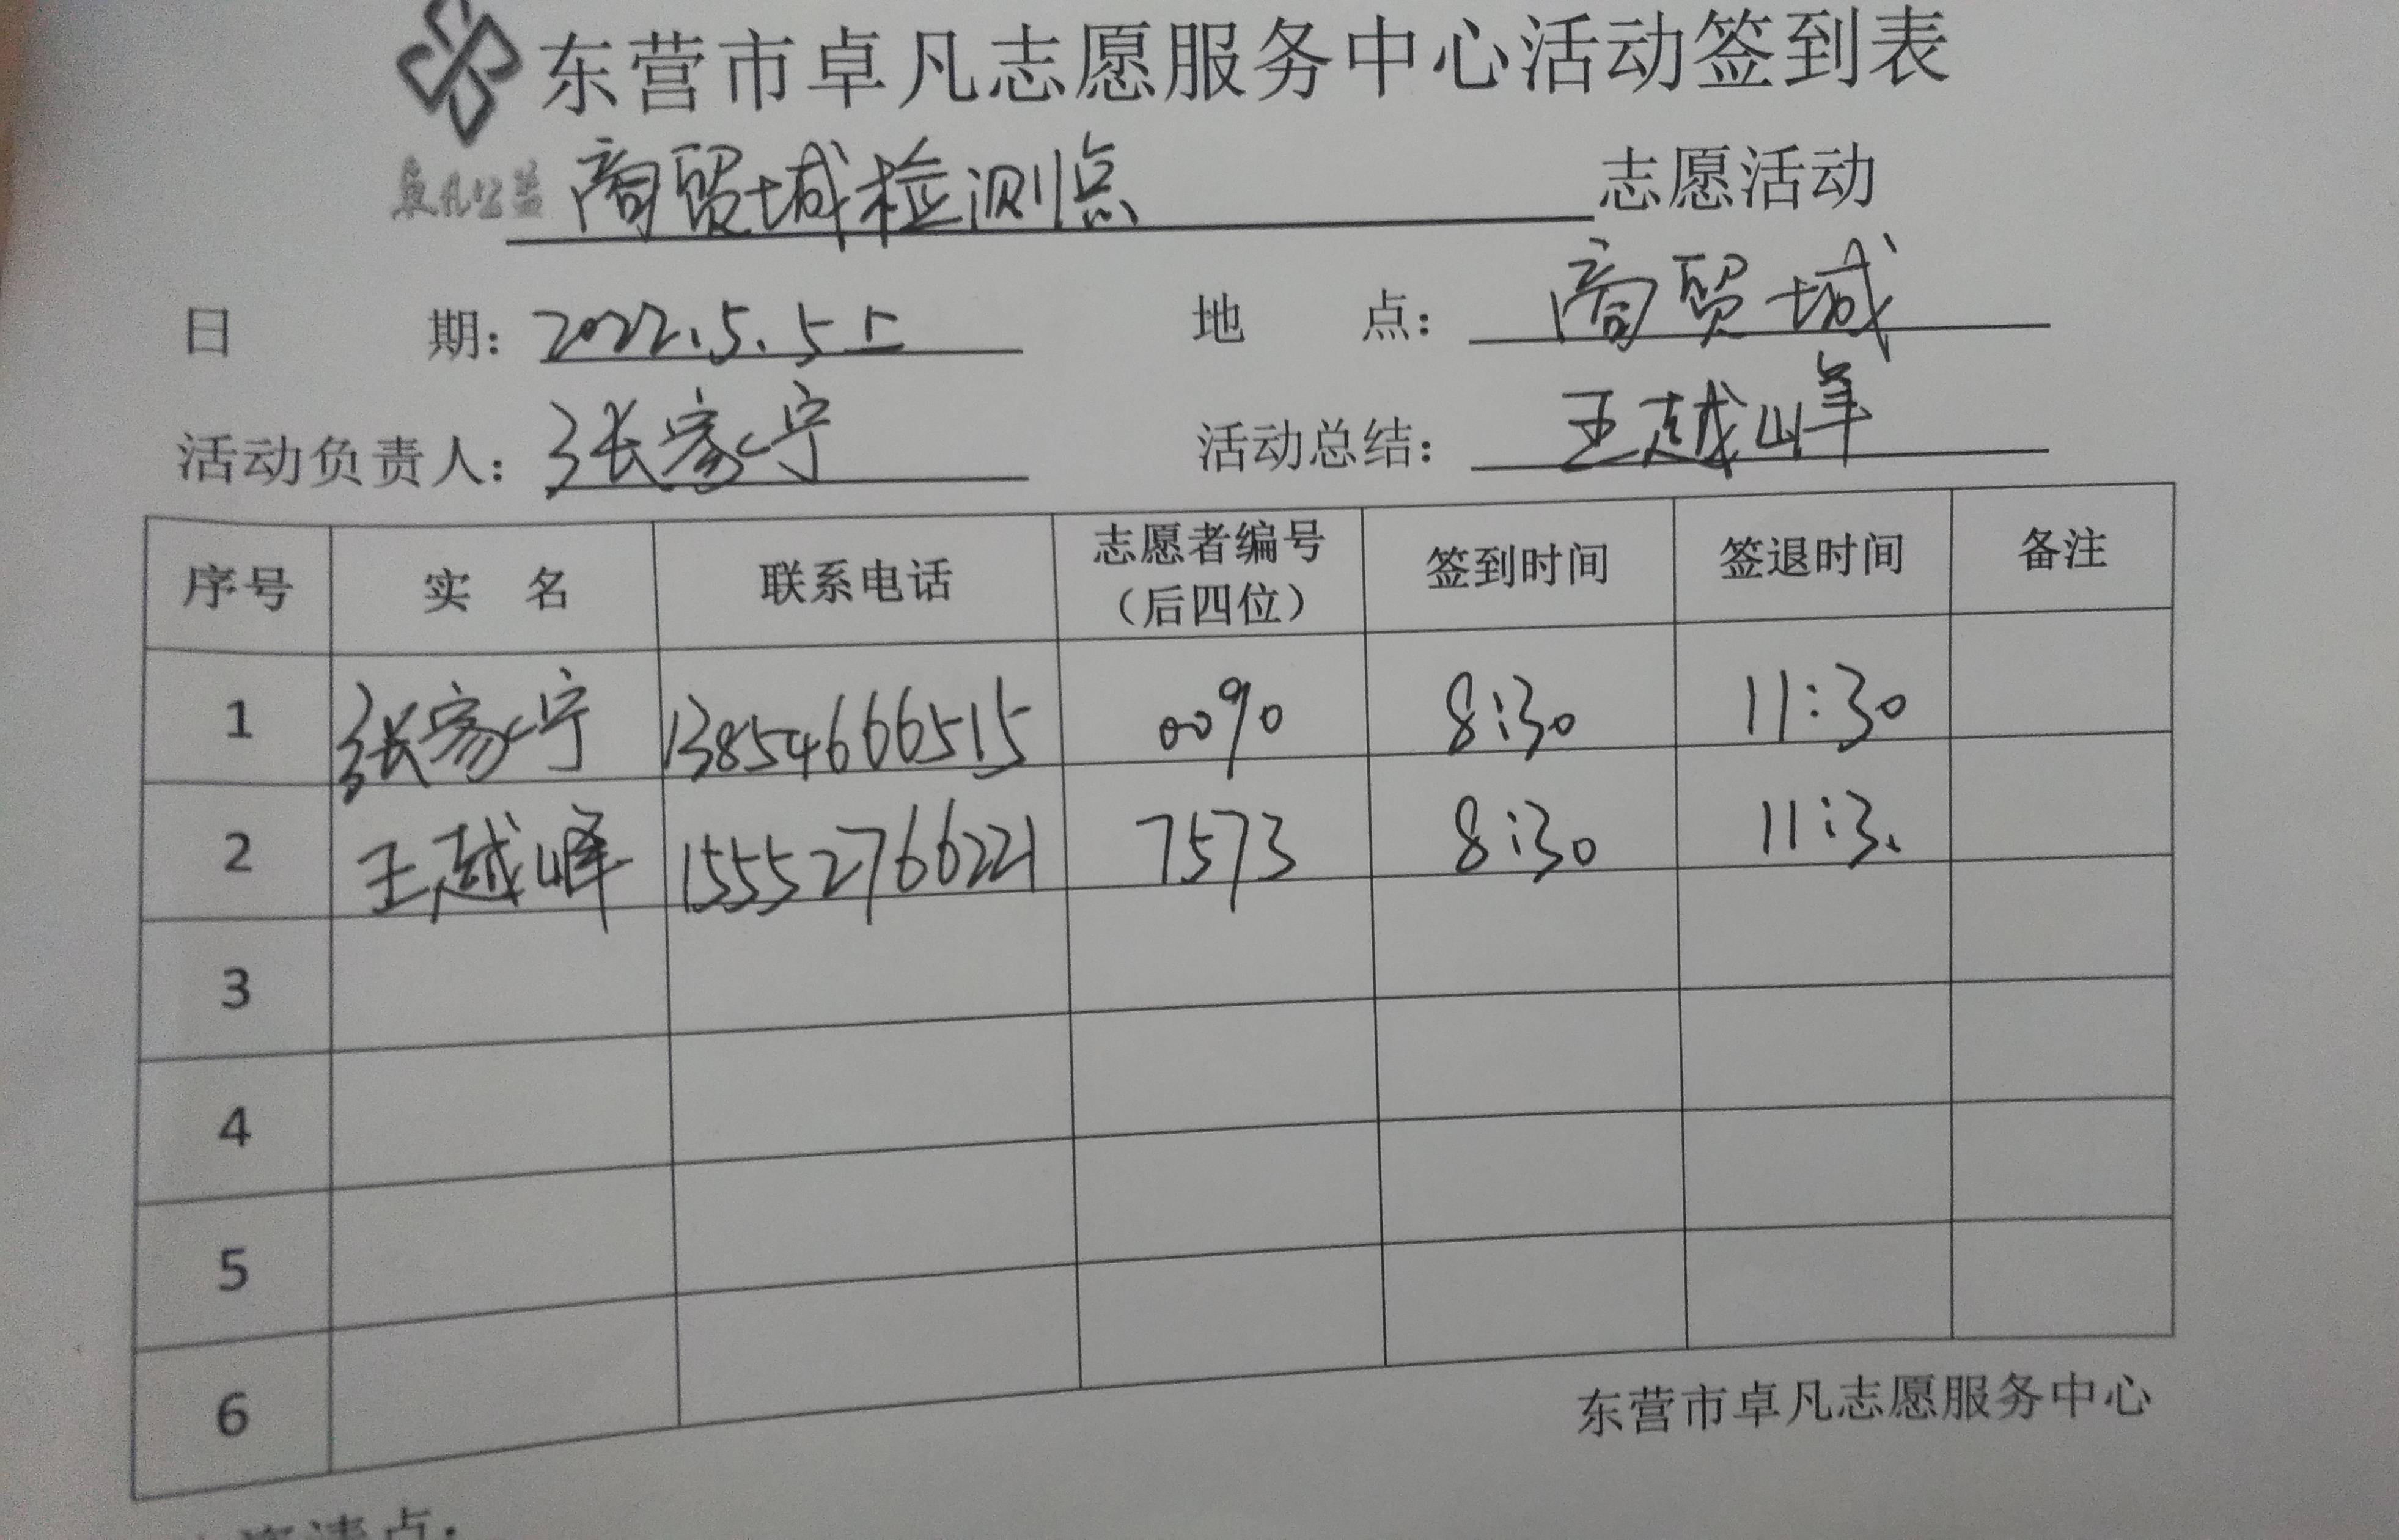 东营市卓凡志愿服务中心活动签到表
卓凡公益 商贸城检测点 志愿活动
日 期: 2022.5.5上 地 点: 商贸城
活动负责人: 张家宁 活动总结: 王越峰
序号 实 名 联系电话 志愿者编号(后四位) 签到时间 签退时间 备注
1 张家宁 13854666515 0090 8:30 11:30
2 王越峰 15552766221 7573 8:30 11:30
3
4
5
6
东营市卓凡志愿服务中心